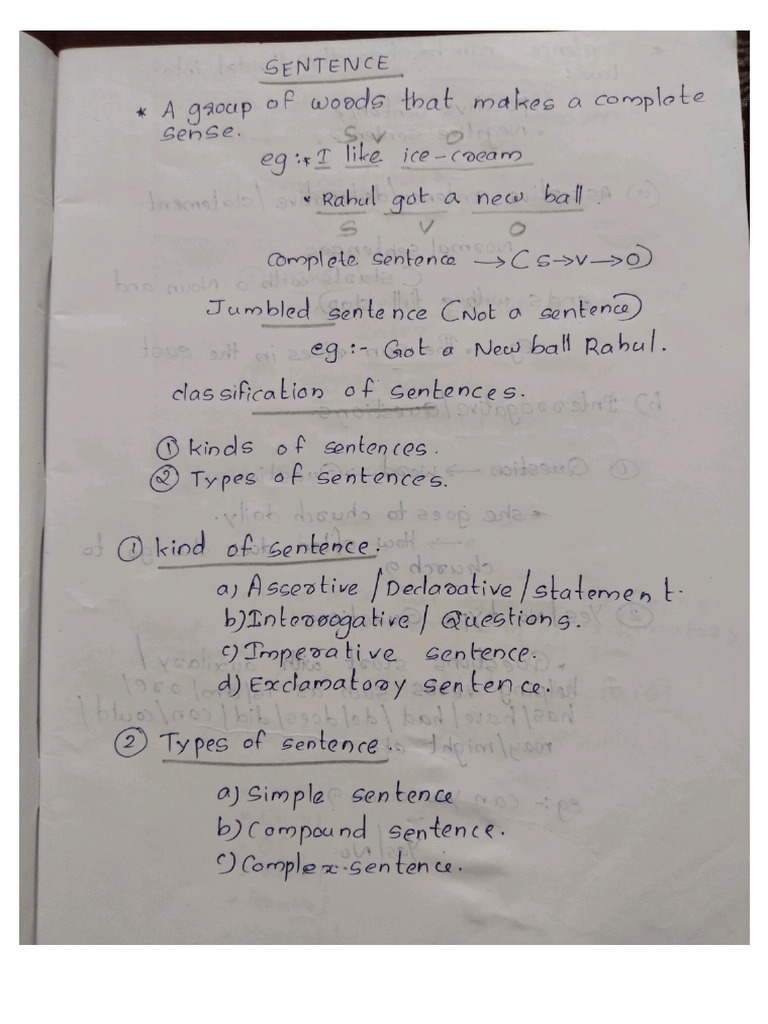 SENTENCE
* A group of words that makes a complete
sense.
S V O
eg :* I like ice-cream
* Rahul got a new ball.
S V O
complete sentence → (S→V→O)
Jumbled sentence (Not a sentence)
eg :- Got a New ball Rahul.
classification of sentences.
① kinds of sentences.
② Types of sentences.
① kind of sentence.
a) Assertive / Declarative / statement.
b) Interrogative / Questions.
c) Imperative sentence.
d) Exclamatory sentence.
② Types of sentence.
a) Simple sentence
b) Compound sentence.
c) Complex sentence.